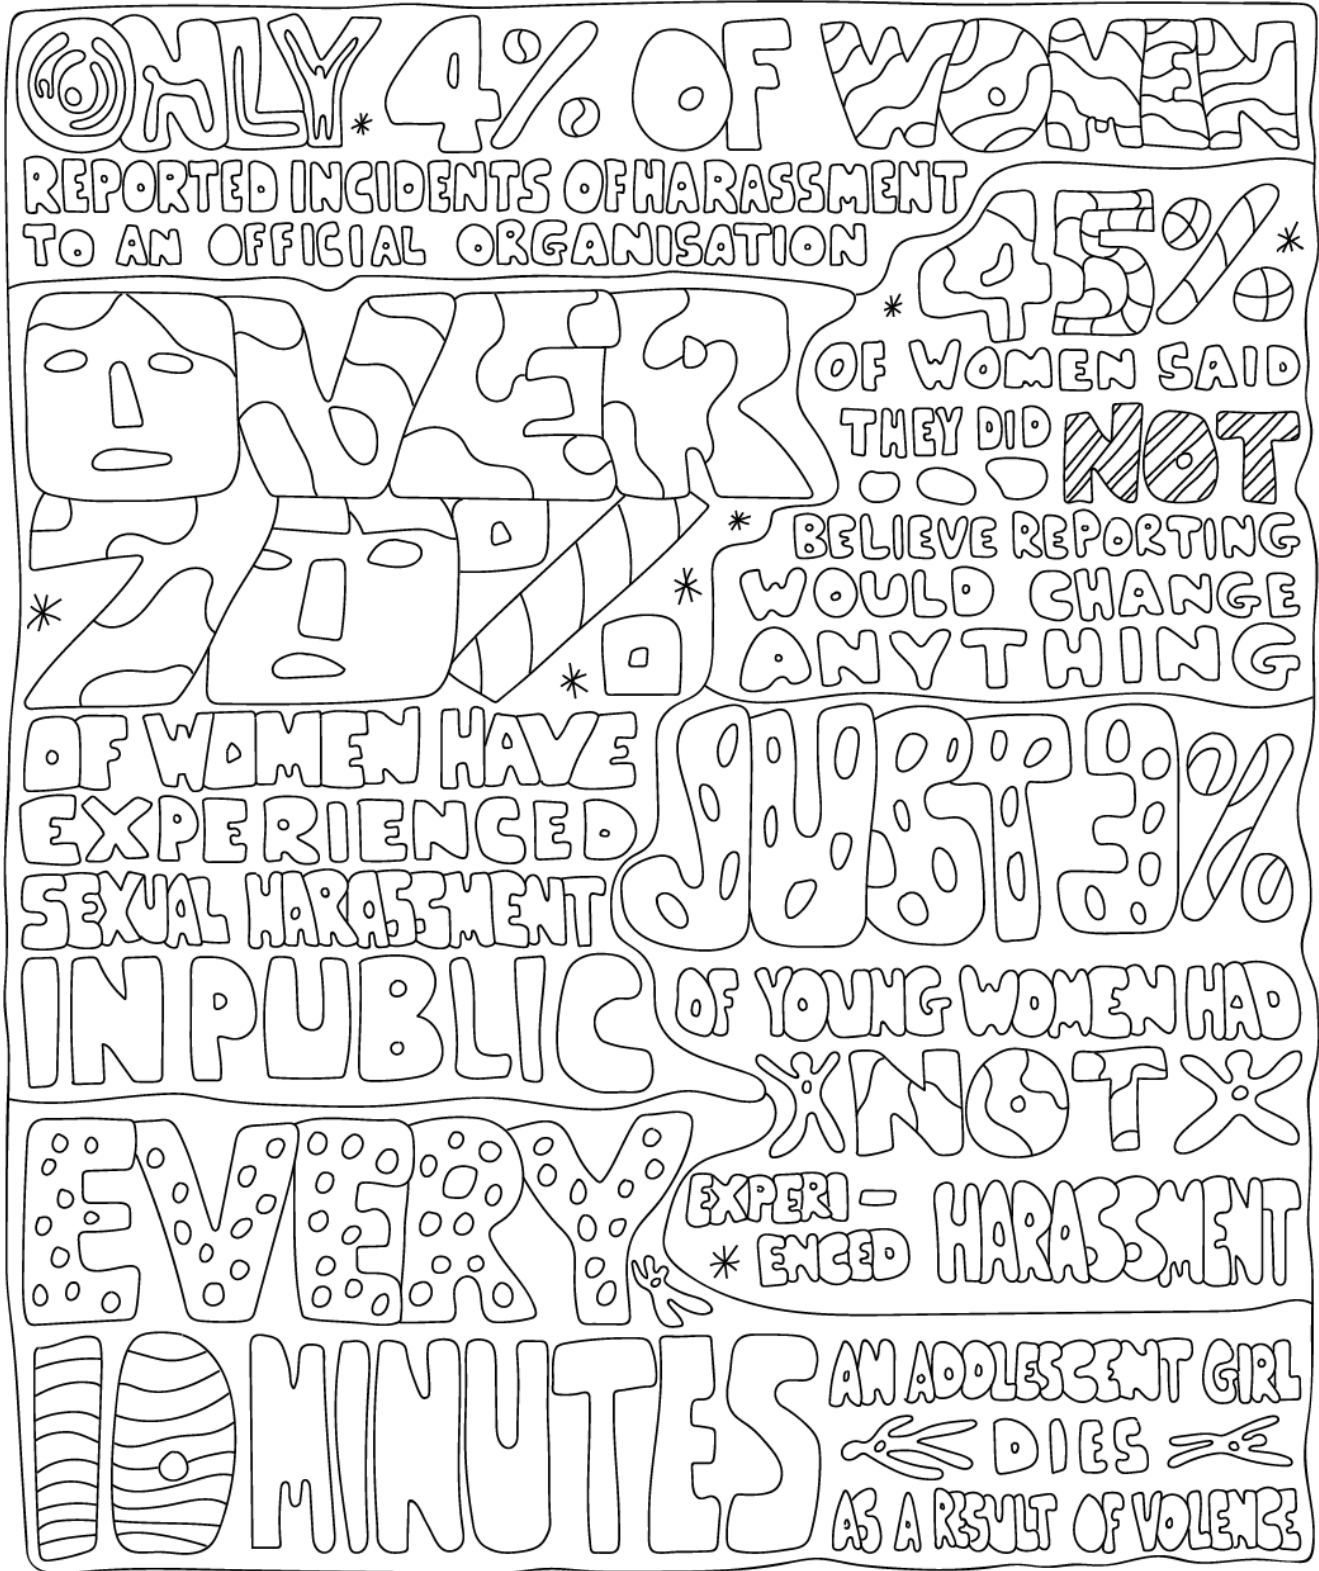 ONLY 4% OF WOMEN
REPORTED INCIDENTS OF HARASSMENT
TO AN OFFICIAL ORGANISATION
45%
OF WOMEN SAID
THEY DID NOT
BELIEVE REPORTING
WOULD CHANGE
ANYTHING
OVER
70%
OF WOMEN HAVE
EXPERIENCED
SEXUAL HARASSMENT
IN PUBLIC
JUST 3%
OF YOUNG WOMEN HAD
NOT
EXPERI-
ENCED HARASSMENT
EVERY
10 MINUTES
AN ADOLESCENT GIRL
DIES
AS A RESULT OF VOLENCE